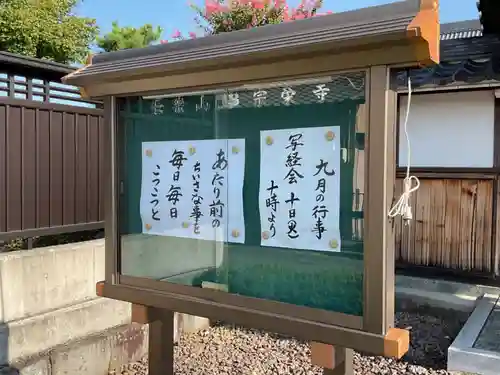 宗榮寺
九月の行事
写経会 十日
十時より
あたり前の
ちいさな事
毎日毎日
こつこつと